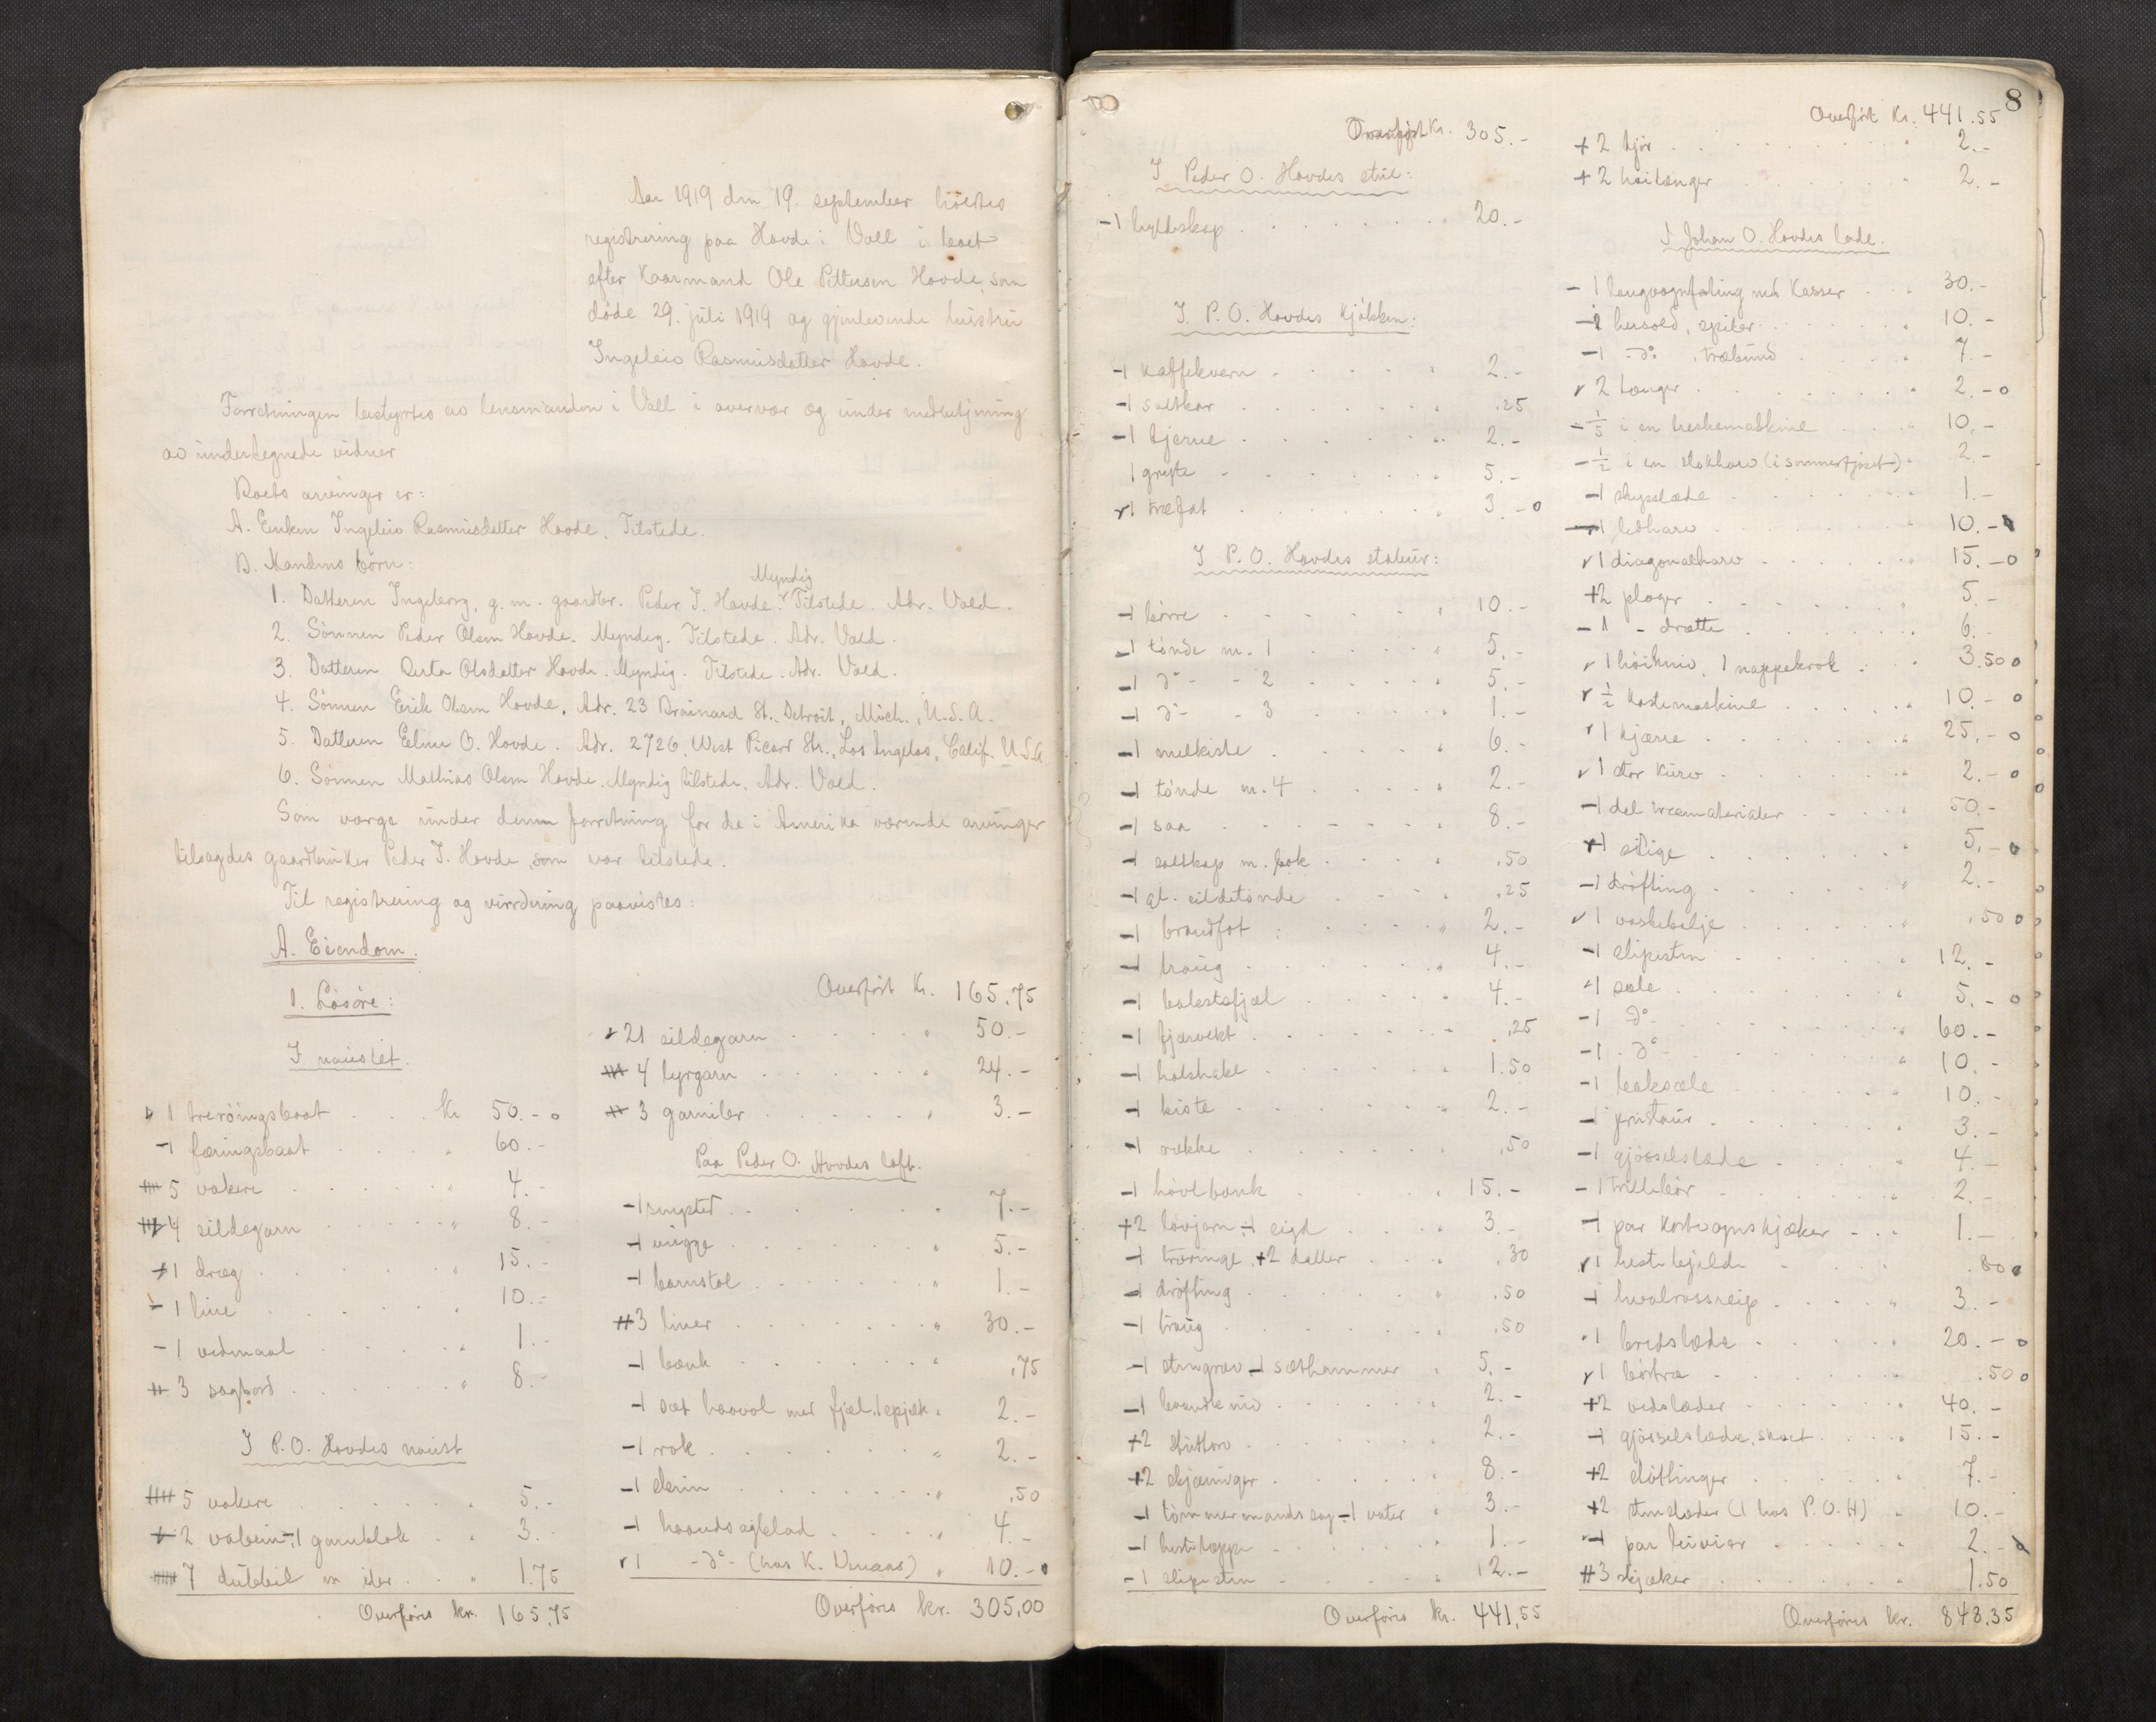 Aar 1919 den 19. september holdtes
registrering paa Hovde i Vold i boet
efter Kaarmand Ole Pettersen Hovde, som
døde 29. juli 1919 og gjenlevende hustru
Ingeleiv Rasmusdatter Hovde.
Forretningen bestyrtes av lensmanden i Vold i overvær og under medbetjening
av undertegnede vidner
Boets arvinger er:
A. Enken Ingeleiv Rasmusdatter Hovde. Tilstede.
B. Mandens børn:
Myndig
1. Datteren Ingeborg, g. m. gaardbr. Peder J. Hovde. Tilstede. Adr. Vold.
2. Sønnen Peder Olsen Hovde. Myndig. Tilstede. Adr. Vold.
3. Datteren Olsdatter Hovde. Myndig. Tilstede. Adr. Vold.
4. Sønnen Erik Olsen Hovde. Adr. 23 Brainard St., Detroit, Mich., U.S.A.
5. Datteren O. Hovde. Adr. 2726, West Str., Los Angelos, Calif. U.S.A
6. Sønnen Mathias Olsen Hovde. Myndig tilstede. Adr. Vold.
Som verge under denne forretning for de i Amerika værende arvinger
tilsagdes gaardbruker Peder J. Hovde, som var tilstede.
Til registrering og vurdering paavistes:
A. Eiendom.
1. Løsøre:
I naustet.
1 trerøringsbaat . . . Kr 50.-
1 færingsbaat . . . " 60.-
5 vakere . . . " 4.-
4 sildegarn . . . " 8.-
1 dræg . . . " 15.-
1 line . . . " 10.-
1 vedmaal . . . " 1.-
3 sagbord . . . " 8.-
I P.O. Hovdes naust
5 vakere . . . " 5.-
2 vabein, 1 garnblok . . " 3.-
7 dubbel m iler . . " 1.75
Overføres kr. 165,75
Overført Kr. 165,75
21 sildegarn . . . " 50.-
4 lyrgarn . . . " 24.-
3 garniler . . . " 3.-
Paa Peder O. Hovdes loft.
1 . . . " 7.-
1 vugge . . . " 5.-
1 barnstol . . . " 1.-
3 liner . . . " 30.-
1 bænk . . . " ,75
1 sæt haavol med fjæl, 1 spjæk " 2.-
1 rok . . . " 2.-
1 skrin . . . " ,50
1 haandsagblad . . . " 4.-
1 -do- (hos K. ) " 10.-
Overføres kr. 305,00
8
Overført Kr. 305.-
I Peder O. Hovdes stue:
1 hyldeskap . . . 20.-
I P.O. Hovdes Kjøkken:
1 kaffekvern . . . " 2.-
1 saltkar . . . ,25
1 kjerne . . . " 2.-
1 gryte . . . " 5.-
1 træfat . . . " 3.-
I P.O. Hovdes stabur:
1 børre . . . " 10.-
1 tønde m. 1 . . . " 5.-
1 do- - 2 . . . " 5.-
1 do- - 3 . . . " 1.-
1 melkiste . . . " 6.-
1 tønde m. 4 . . . " 2.-
1 saa . . . " 8.-
1 saltkop m. lok . . . " ,50
1 gl. sildetønde . . . " ,25
1 brandfat . . . " 2.-
1 traug . . . " 4.-
1 bakstefjøl . . . " 4.-
1 fjærvekt . . . " ,25
1 halshake . . . " 1.50
1 kiste . . . " 2.-
1 rokke . . . " ,50
1 høvlbænk . . . " 15.-
2 høvjarn, 1 sigd . . " 3.-
1 træringe, 2 daller . . ,30
1 drøfting . . . " ,50
1 traug . . . ,50
1 stengrev, 1 sæthammer " 5.-
1 baandkniv . . . " 2.-
2 stuttorv . . . " 2.-
2 skjæringer . . . " 8.-
1 tømmermandssag, 1 vater " 3.-
1 hestetæppe . . . " 1.-
1 slipesten . . . " 12.-
Overføres kr. 441,55
Overført Kr. 441.55
2 ljør . . . " 2.-
2 høitænger . . . " 2.-
I Johan O. Hovdes lade.
1 langvognfating med Kasser . . " 30.-
1 husold, spiler . . . " 10.-
1 -do- , træbund . . . " 7.-
2 tænger . . . " 2.-
1/5 i en treskemaskine . . . 10.-
1/2 i en slokharv (i sommerfjøset) . 2.-
1 skysslæde . . . 1.-
1 ledharv . . . 10.-
1 diagonalharv . . . 15.-
2 ploger . . . 5.-
1 - drætte . . . 6.-
1 høikniv, 1 nappekrok . . 3.50
1/2 Kastemaskine . . . 10.-
1 kjærre . . . " 25.-
1 stor kurv . . . " 2.-
1 del træmaterialer . . . 50.-
1 stige . . . " 5.-
1 drøfting . . . " 2.-
1 vaskebalje . . . " ,50
1 slipesten . . . " 12.-
1 sæle . . . " 5.-
1 -do- . . . " 60.-
1 -do- . . . " 10.-
1 baksæle . . . " 10.-
1 . . . " 3.-
1 gjødselslæde . . . " 4.-
1 trillebør . . . " 2.-
1 par kortvognskjæker . . . 1.-
1 hestebjelde . . . .80
1 hvalrossreip . . . " 3.-
1 bredslæde . . . " 20.-
1 børtræ . . . " .50
2 vedslæder . . . " 40.-
1 gjødselslæde, skoet . . . 15.-
2 støttinger . . . " 7.-
2 stenslæder (1 hos P.O.H) . . 10.-
1 par huvier . . . " 2.-
3 skjæker . . . " 1.50
Overføres kr. 848.35